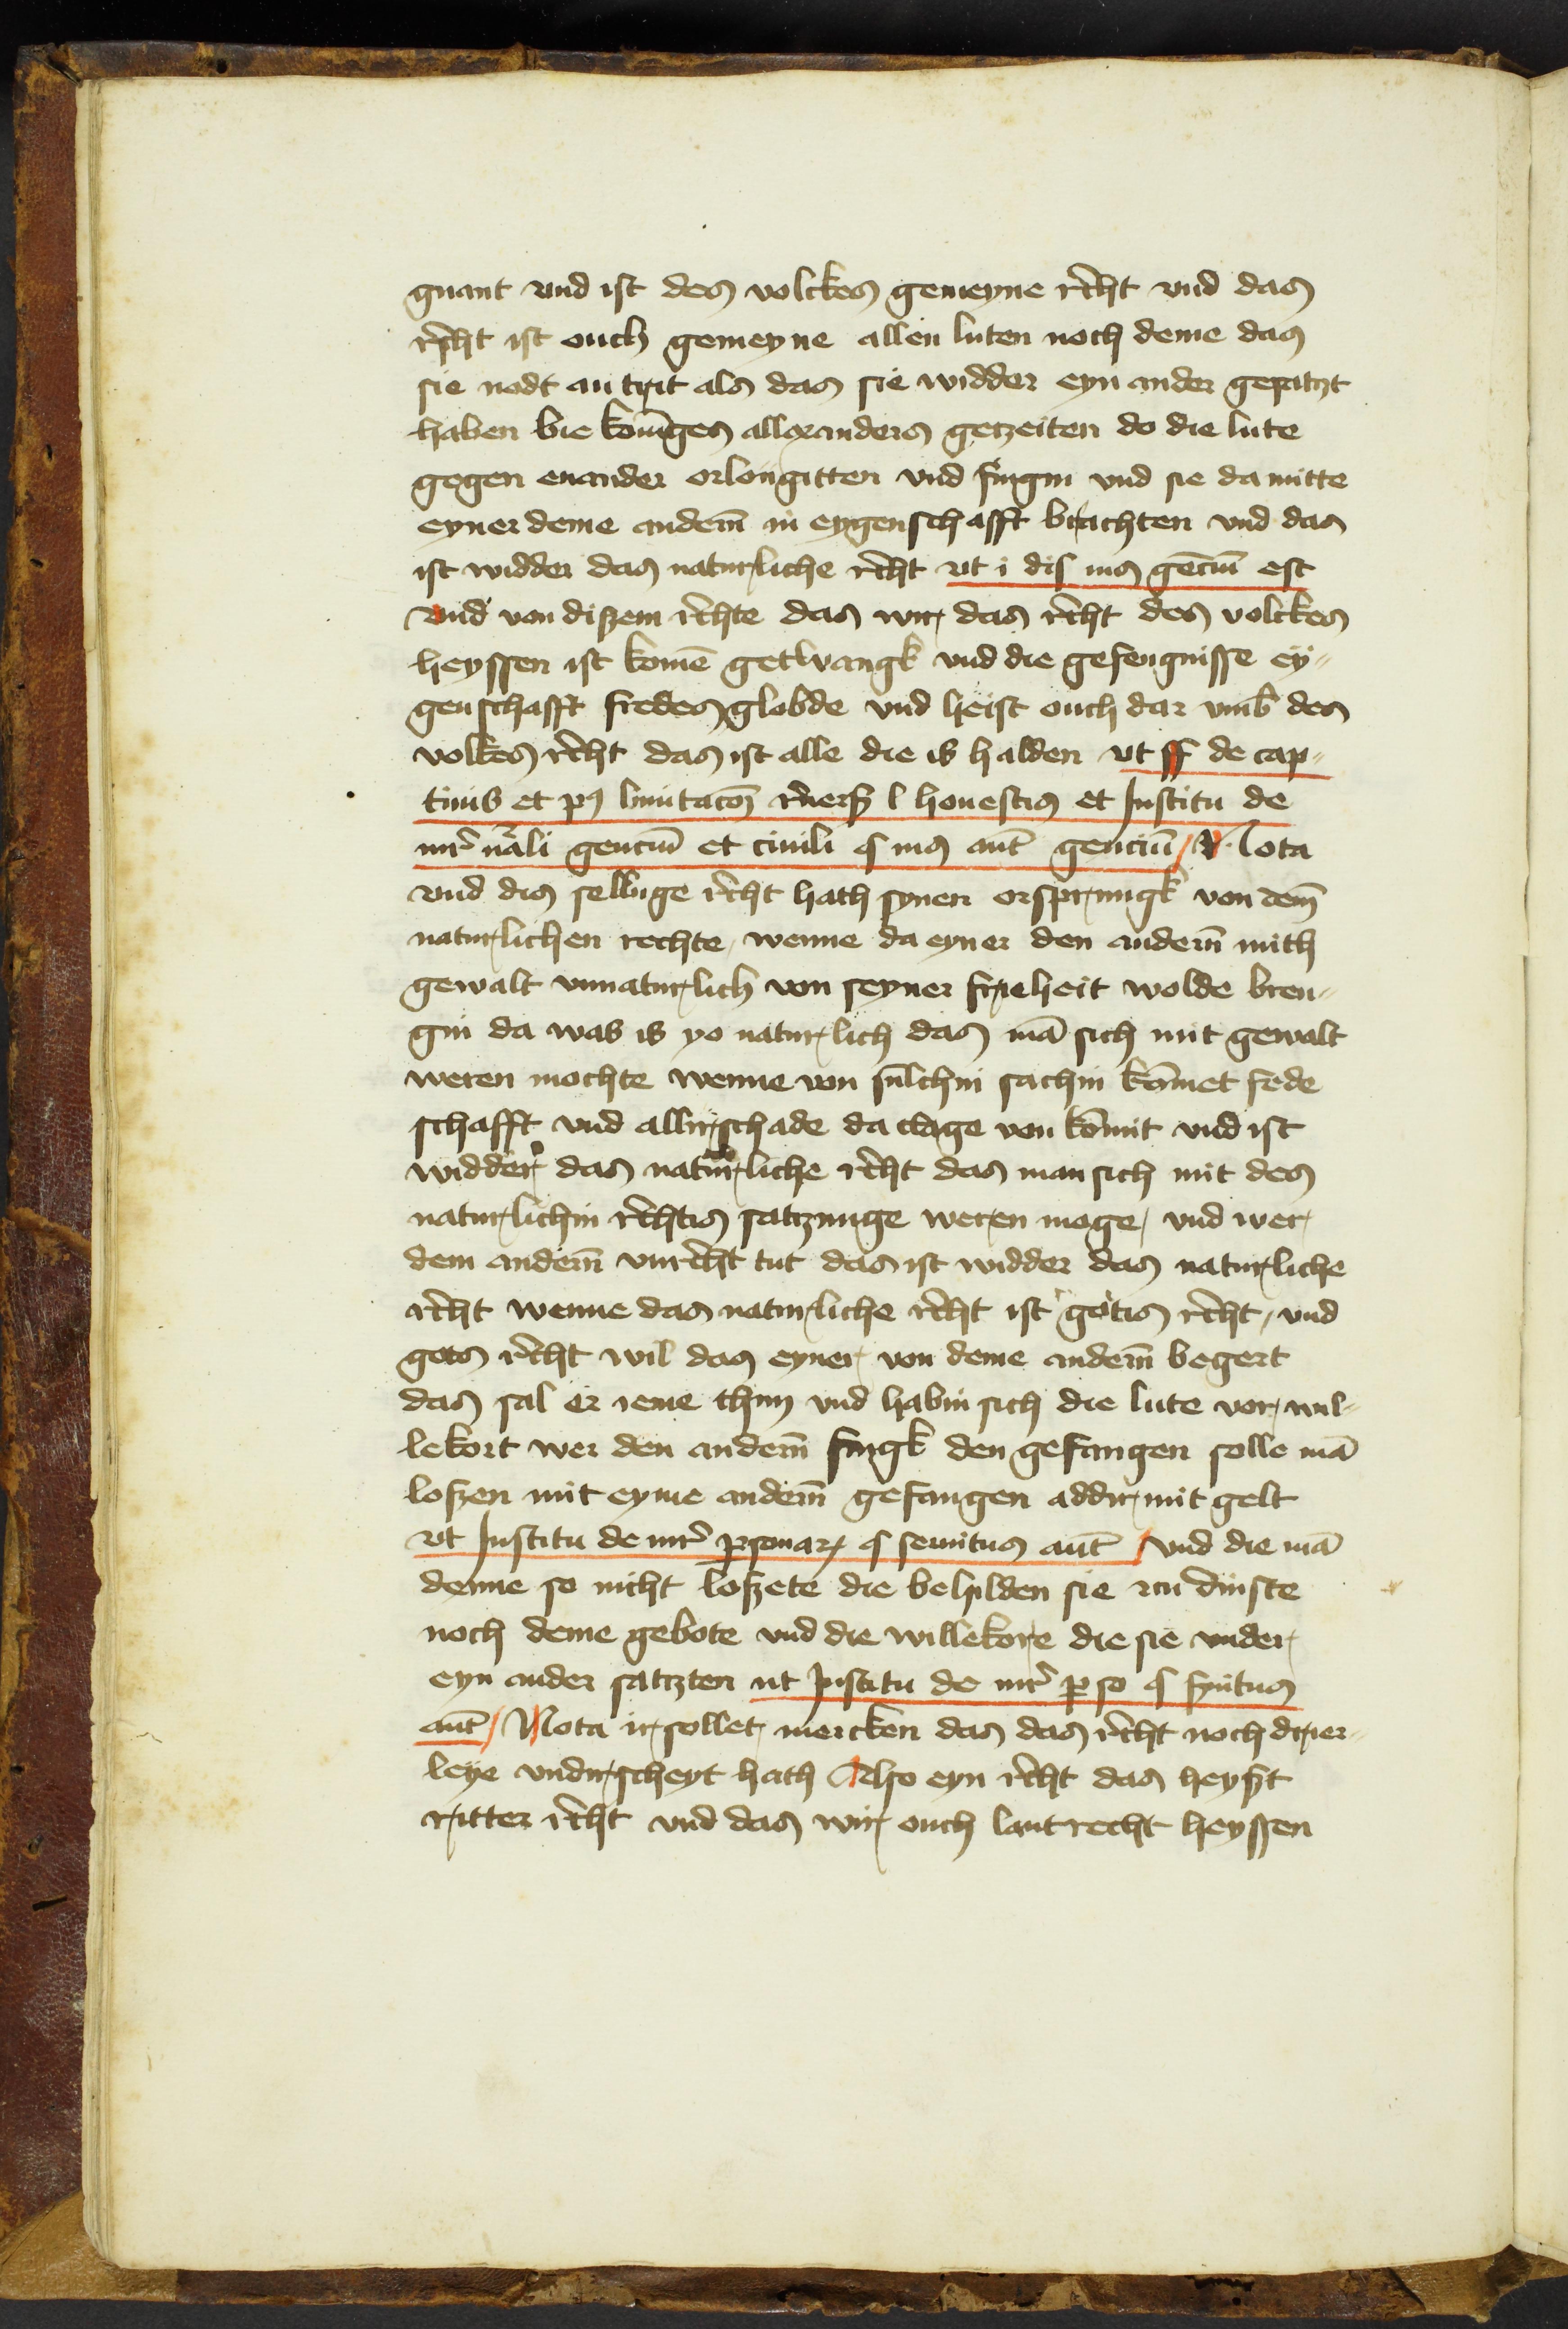 gnant vnd ist des volckes gemeyne r̄cht vnd das
r̄cht ist ouch gemeyne allen luten noch deme das
sie nodt an trit als das sie widder eyn ander gesatzt
haben bie konīges allexanders getzeiten do die lute
gegen enander orlougitten vnd fingin vnd sie da mitte
eyner deme anderm̄ in eygenschafft brachten vnd das
ist widder das naturliche r̄cht vt i dis ius gēciū est
vnd von diszem r̄chte das wir das r̄cht des volckes
heyssen ist komē getwangk vnd die gefengnisse ey-
genschafft fredes globde vnd heist ouch dar vmb des
volkes r̄cht das ist alle die is halden vt ff de cap-
tiuis et pꝰ limitacō r̄uers̄ l honestus et Institu de
iur̄ nāli genciū et ciuili § ius aut̄ genciū / Nota
vnd dis selbige r̄cht hath synen orsprungk von dem̄
naturlichen rechte / wenne da eyner den anderm̄ mith
gewalt vnnaturlich von seyner frieheit wolde bren-
gin da was is yo naturlich das mā sich mit gewalt
weren mochte wenne von sulchin sachin kōmet fede
schafft vnd allir schade da clage von kōmit vnd ist
widder das naturliche r̄cht das man sich mit des
naturlichin r̄chtis satzunge weren moge / vnd wer
dem anderm̄ vnr̄cht tut das ist widder das naturliche
r̄cht wenne das naturliche r̄cht ist gotis r̄cht / vnd
gots r̄cht wil das eyner von deme anderm̄ begert
das sal er ieme thun vnd habin sich die lute vor wil-
lekort wer den anderm̄ fingk den gefangen solle mā
loszen mit eyme anderm̄ gefangen addir mit gelt
vt Institu de iur̄ ꝑsonaꝝ § seruitus aut̄ / vnd die mā
denne so nicht loszete die behilden sie zcu dinste
noch deme gebote vnd die willekore die sie vnder
eyn ander satzten ut Institu de iur̄ ꝑso § s̄uitus
aut̄ / Nota ir sollet mercken das das r̄cht noch drier-
leye vndirscheyt hath Also eyn r̄cht das heyszt
ritter r̄cht vnd das wir ouch lantrecht heyssen